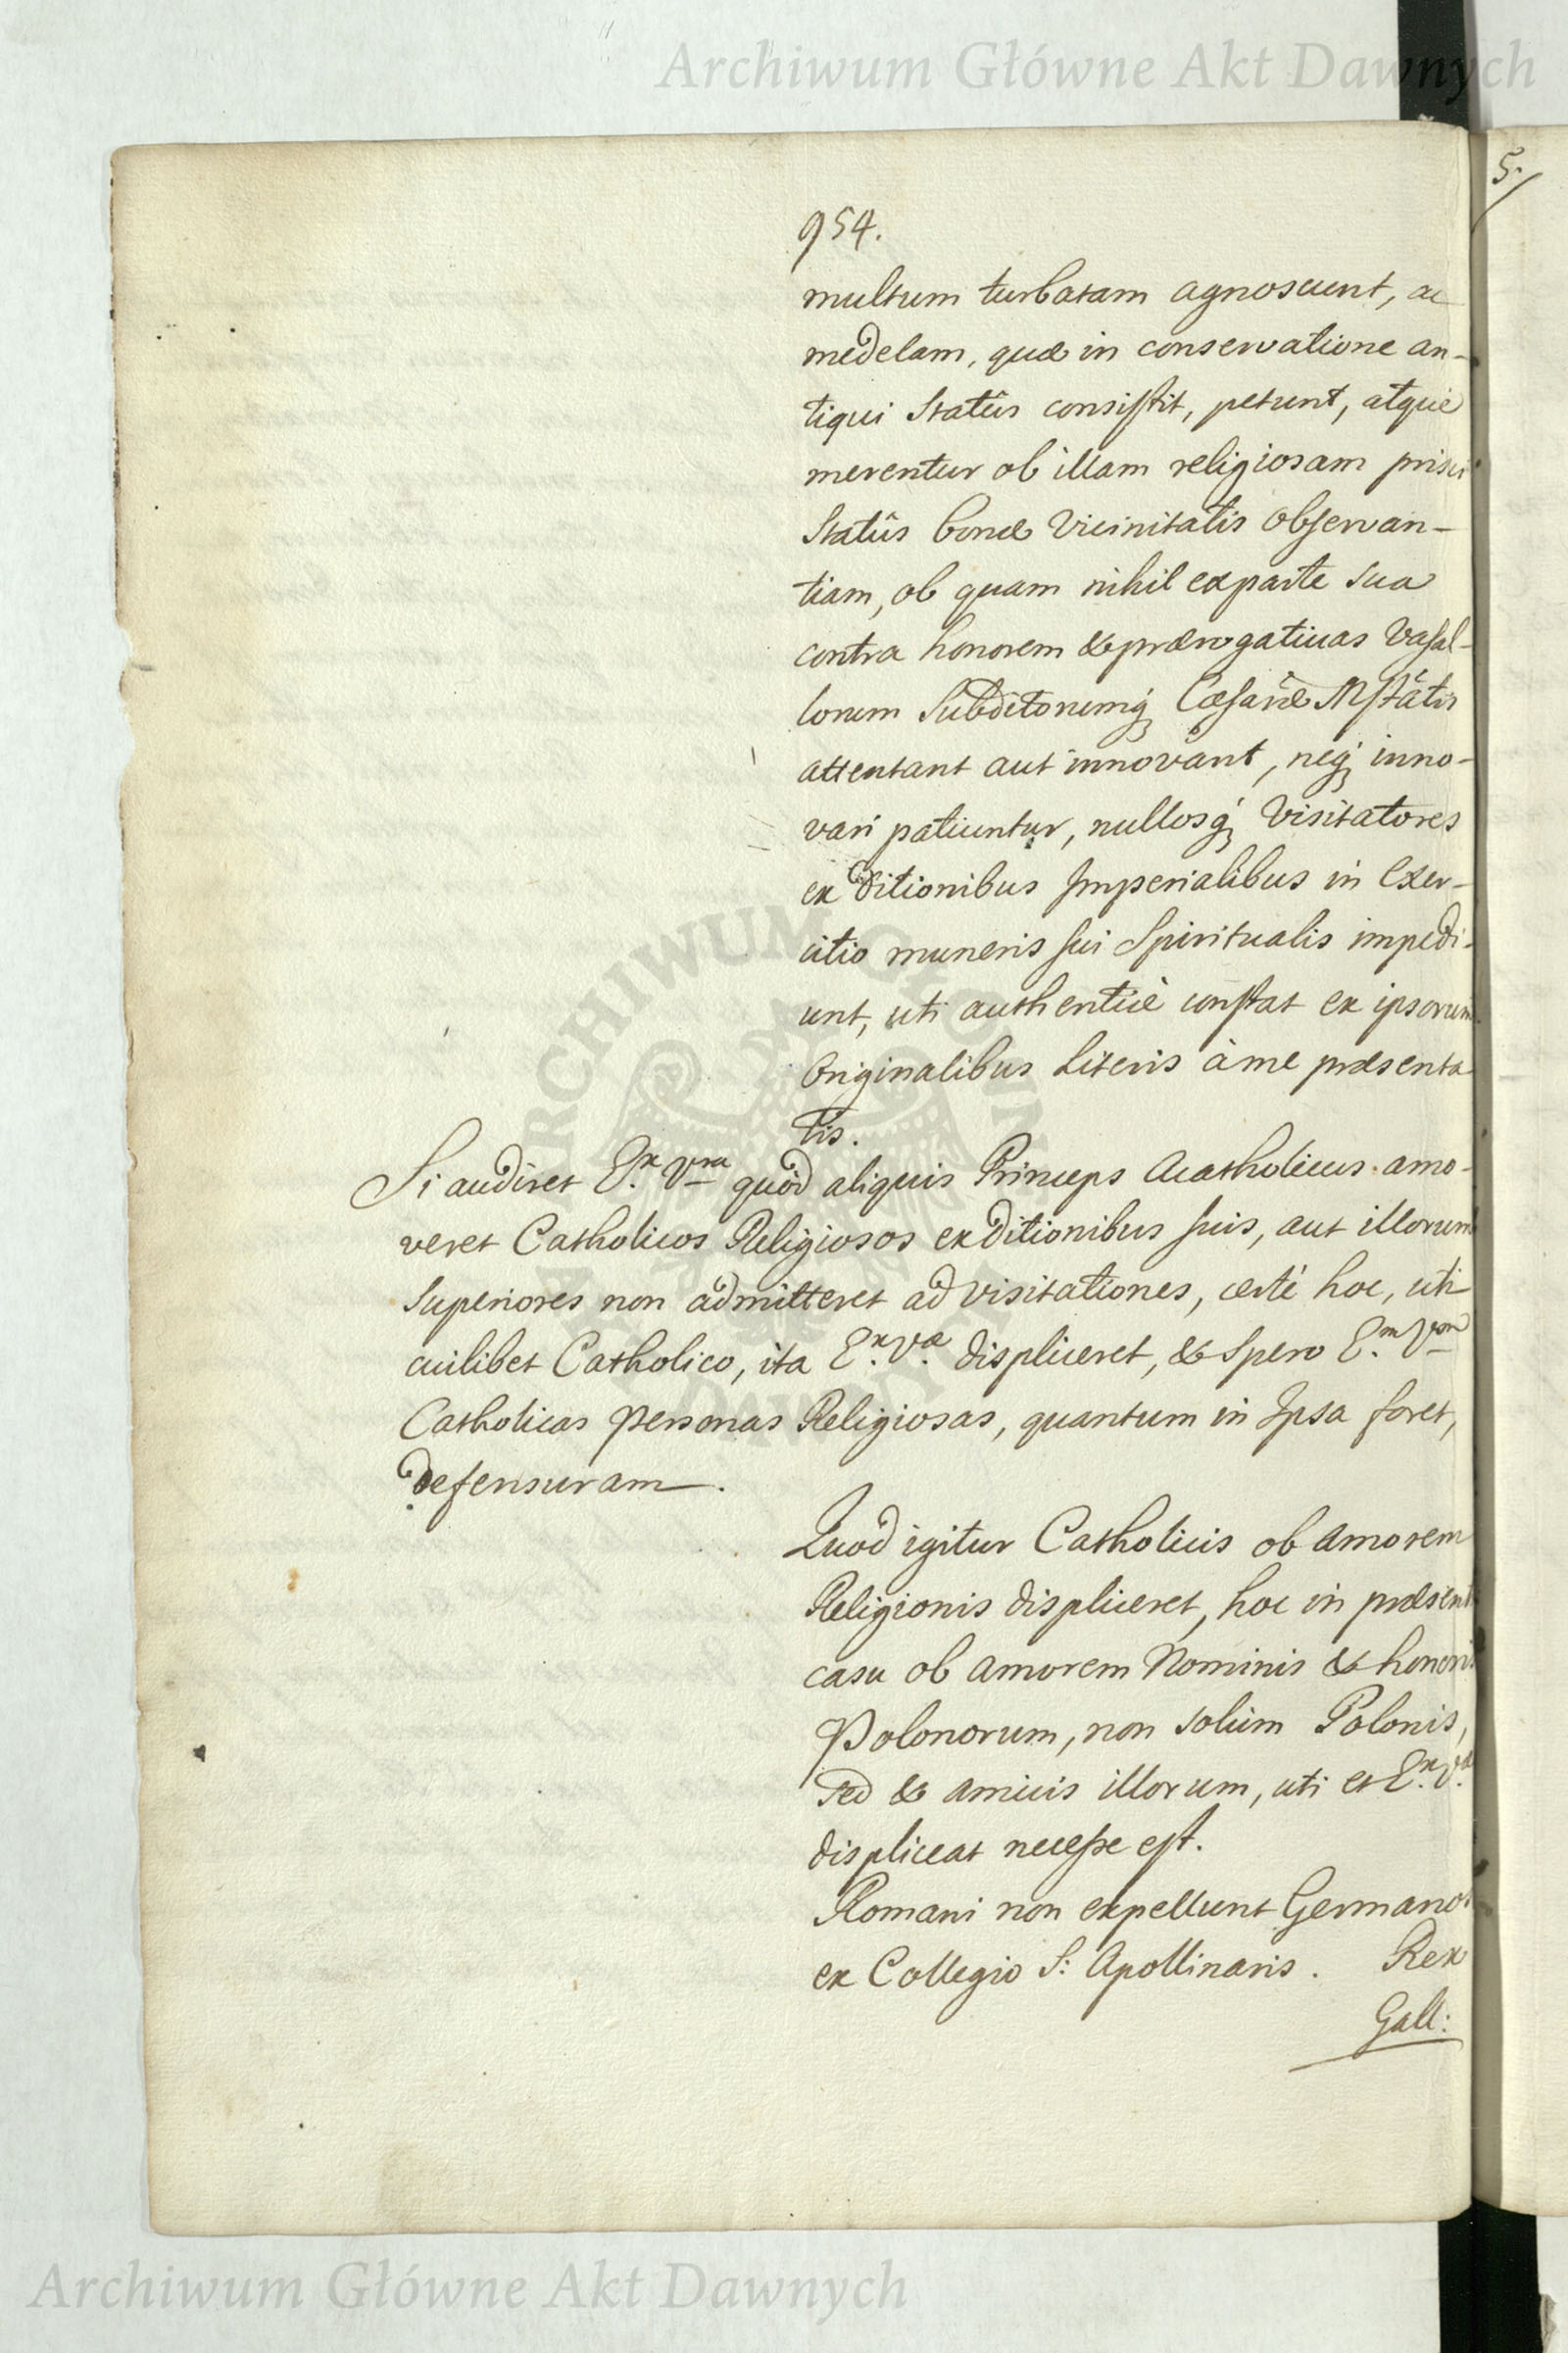 Archiwum Główne Akt Dawnych
5.
954.
multum turbatam agnoscunt, ac
medelam, quæ in conservatione an-
tiqui Statûs consistit, petunt, atque
merentur ob illam religiosam prisci
Statûs bonæ Vicinitatis observan-
tiam, ob quam nihil ex parte sua
contra honorem & prærogativas Vasal-
lorum Subditorumq́ Cæsareæ Mstatis
attentant aut innovant, neq́ inno-
vari patiuntur, nullosq́ Visitatores
ex ditionibus Imperialibus in Exer-
citio muneris sui Spiritualis impedi-
unt, uti authenticè constat ex ipsorum
Originalibus Literis à me præsenta
tis.
Si audiret Ex. Vra quòd aliquis Princeps Acatholicus amo-
veret Catholicos Religiosos ex ditionibus suis, aut illorum
Superiores non admitteret ad visitationes, certè hoc, uti
cuilibet Catholico, ita Ex. Væ. displiceret, & spero Em. Vram
Catholicas Personas Religiosas, quantum in Ipsa foret,
defensuram.
Quod igitur Catholicis ob amorem
Religionis displiceret, hoc in præsenti
casu ob amorem Nominis & honoris
Polonorum, non solùm Polonis,
sed & amicis illorum, uti et Ex. Væ
displiceat necesse est.
Romani non expellunt Germanos
ex Collegio S: Apollinaris. Rex
Gall:
Archiwum Główne Akt Dawnych